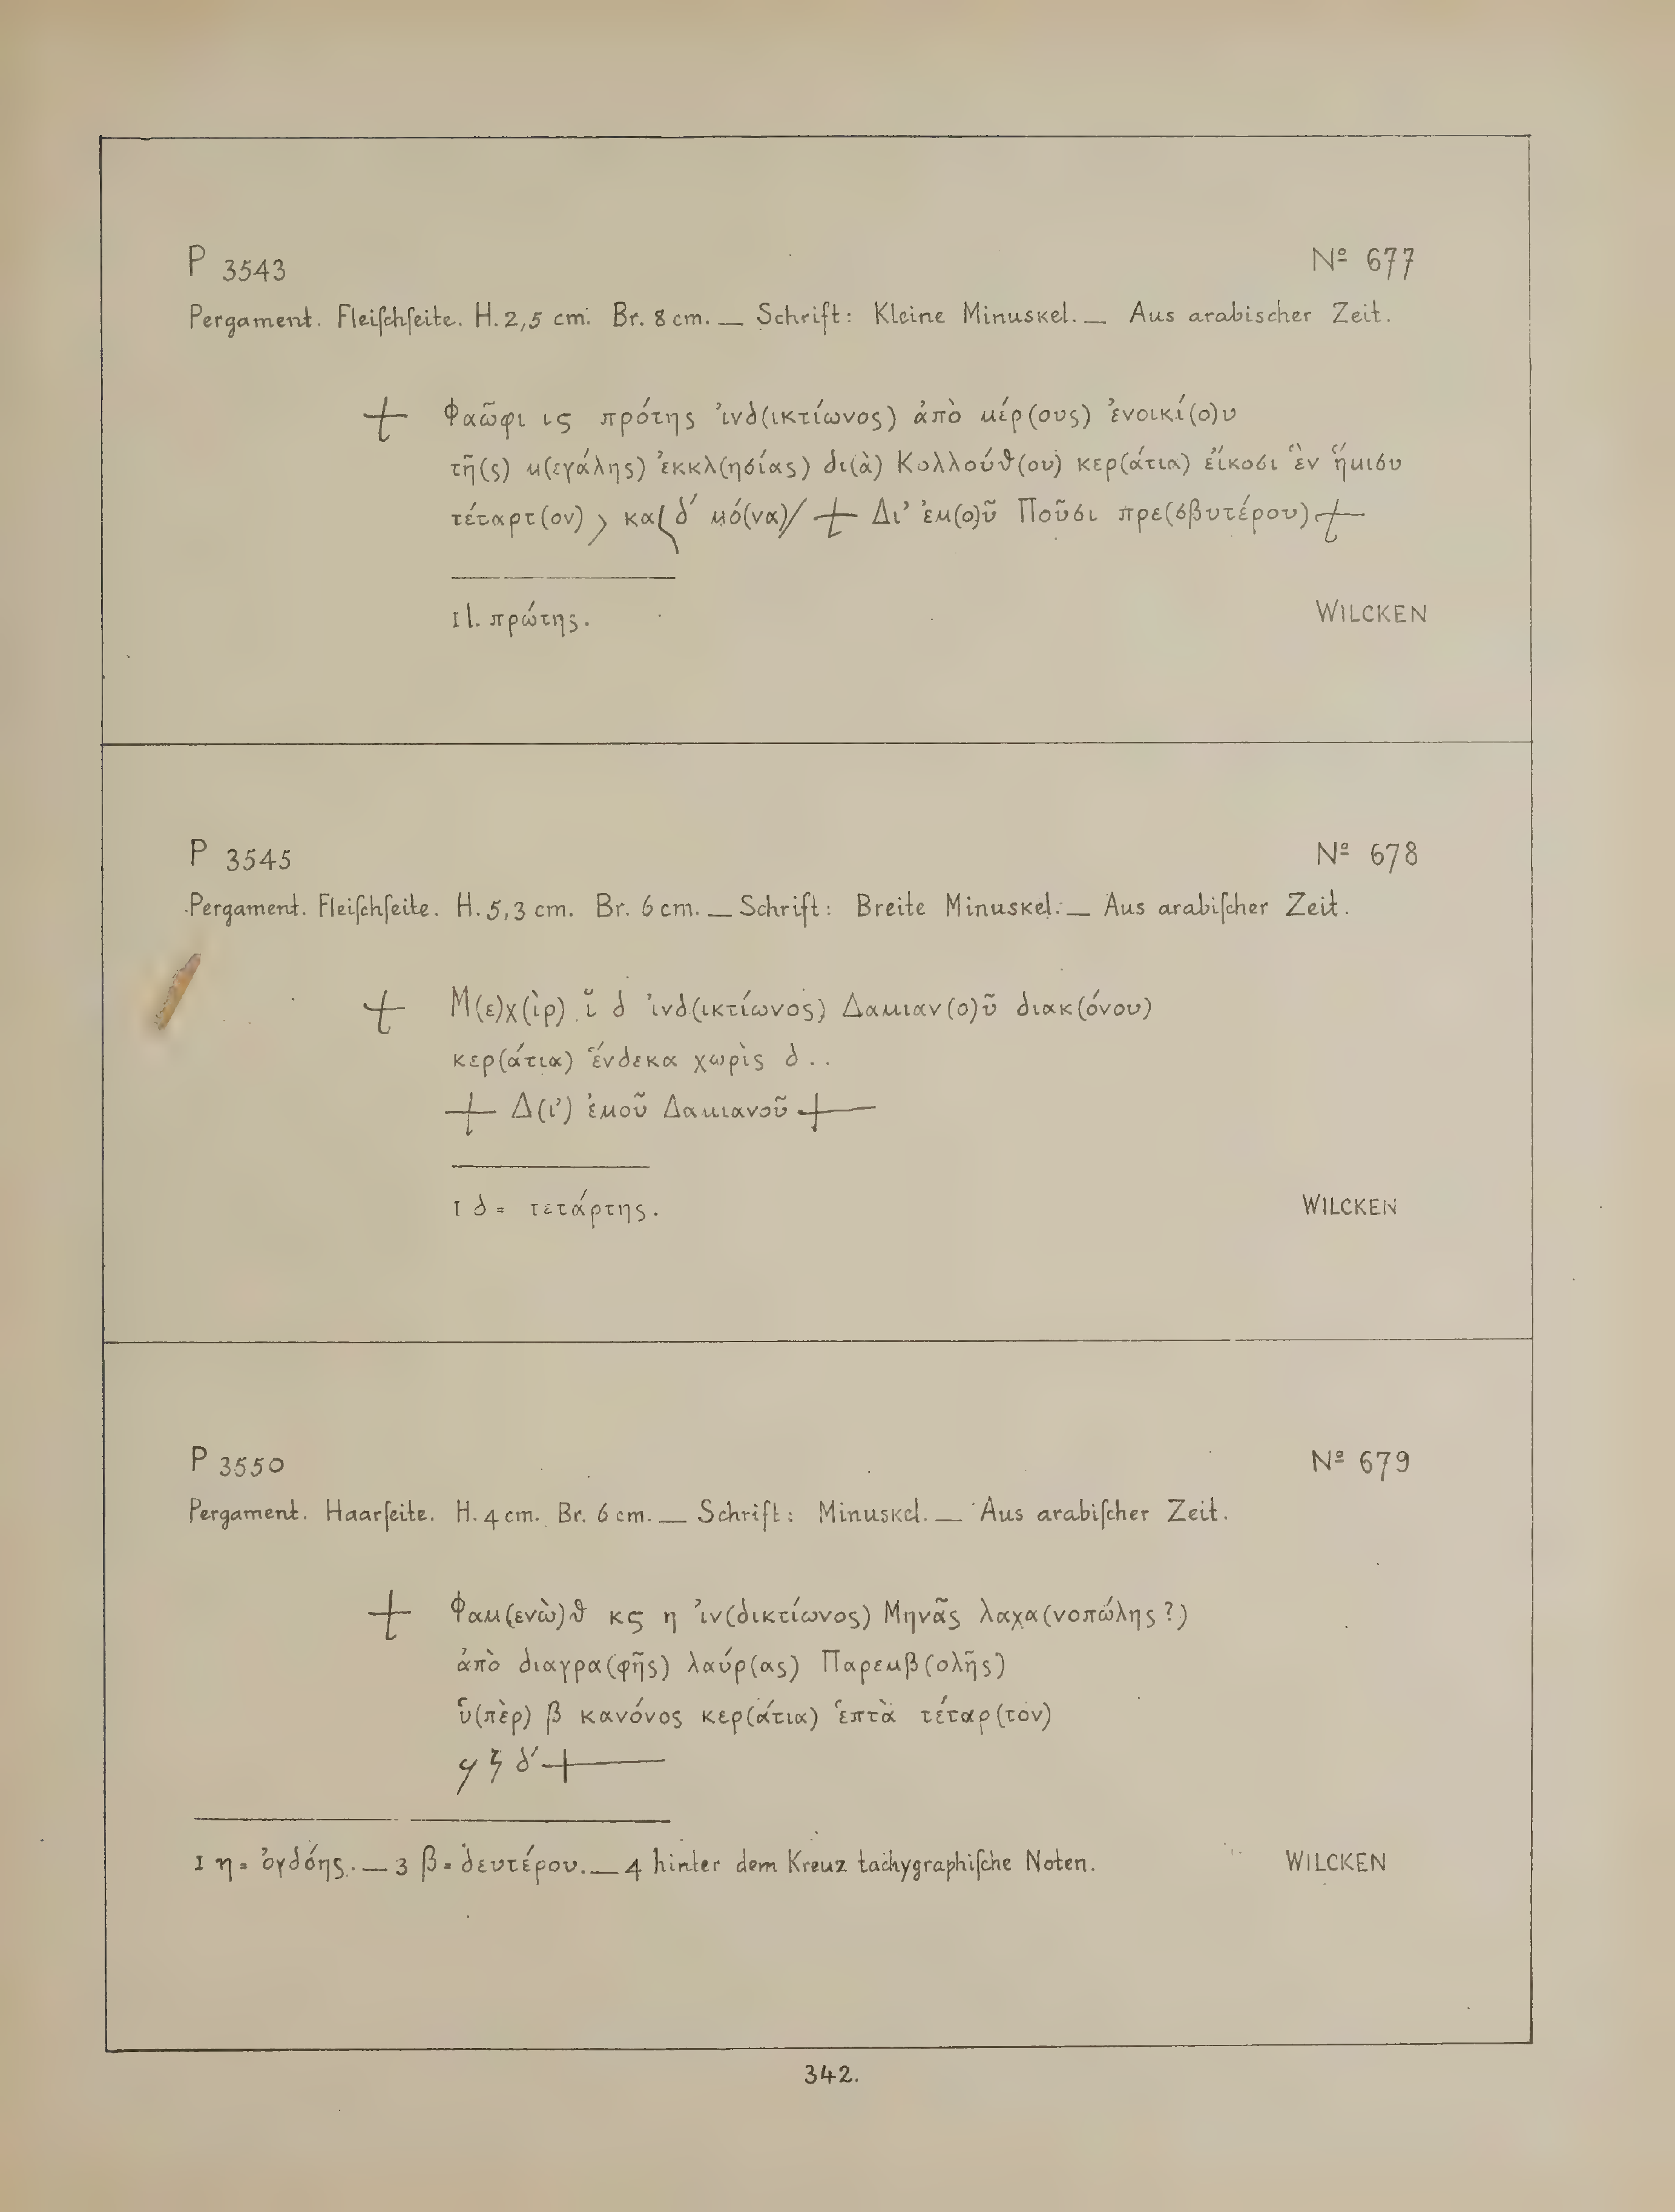 P 3543 Nº 677
Pergament. Fleiſchſeite. H. 2,5 cm. Br. 8 cm. — Schrift: Kleine Minuskel. — Aus arabischer Zeit.
† Φαῶφι ις πρότης ἰνδ(ικτίωνος) ἀπὸ μέρ(ους) ἐνοικί(ο)υ
τῆ(ς) μ(εγάλης) ἐκκλ(ησίας) δι(ὰ) Κολλούθ(ου) κερ(άτια) εἴκοσι ἓν ἥμισυ
τέταρτ(ον) κα δ´ μό(να)/ † Δι' ἐμ(ο)ῦ Ποῦσι πρε(σβυτέρου) †
1 l. πρώτης. WILCKEN
P 3545 Nº 678
Pergament. Fleiſchſeite. H. 5,3 cm. Br. 6 cm. — Schrift: Breite Minuskel. — Aus arabiſcher Zeit.
† Μ(ε)χ(ὶρ) ῐ δ ἰνδ(ικτίωνος) Δαμιαν(ο)ῦ διακ(όνου)
κερ(άτια) ἕνδεκα χωρὶς δ . .
† Δ(ι') ἐμοῦ Δαμιανοῦ †
1 δ = τετάρτης. WILCKEN
P 3550 Nº 679
Pergament. Haarſeite. H. 4 cm. Br. 6 cm. — Schrift: Minuskel. — Aus arabiſcher Zeit.
† Φαμ(ενὼ)θ κς η ἰν(δικτίωνος) Μηνᾶς λαχα(νοπώλης?)
ἀπὸ διαγρα(φῆς) λαύρ(ας) Παρεμβ(ολῆς)
ὑ(πὲρ) β κανόνος κερ(άτια) ἑπτὰ τέταρ(τον)
ζ δ´ †
1 η = ὀγδόης. — 3 β = δευτέρου. — 4 hinter dem Kreuz tachygraphiſche Noten. WILCKEN
342.